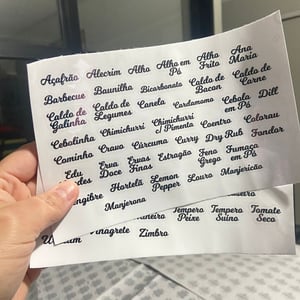 Açafrão Alecrim Alho Alho em Pó Alho Frito Ana Maria
Barbecue Baunilha Bicarbonato Caldo de Bacon Caldo de Carne
Caldo de Galinha Caldo de Legumes Canela Cardamomo Cebola em Pó Dill
Cebolinha Chimichurri Chimichurri s/ Pimenta Coentro Colorau
Cominho Cravo Cúrcuma Curry Dry Rub Fondor
Edu Erva Doce Ervas Finas Estragão Feno Grego Fumaça em Pó
Hortelã Lemon Pepper Louro Manjericão
Manjerona
Tempero Peixe Tempero Suíno Tomate Seco
Zimbro